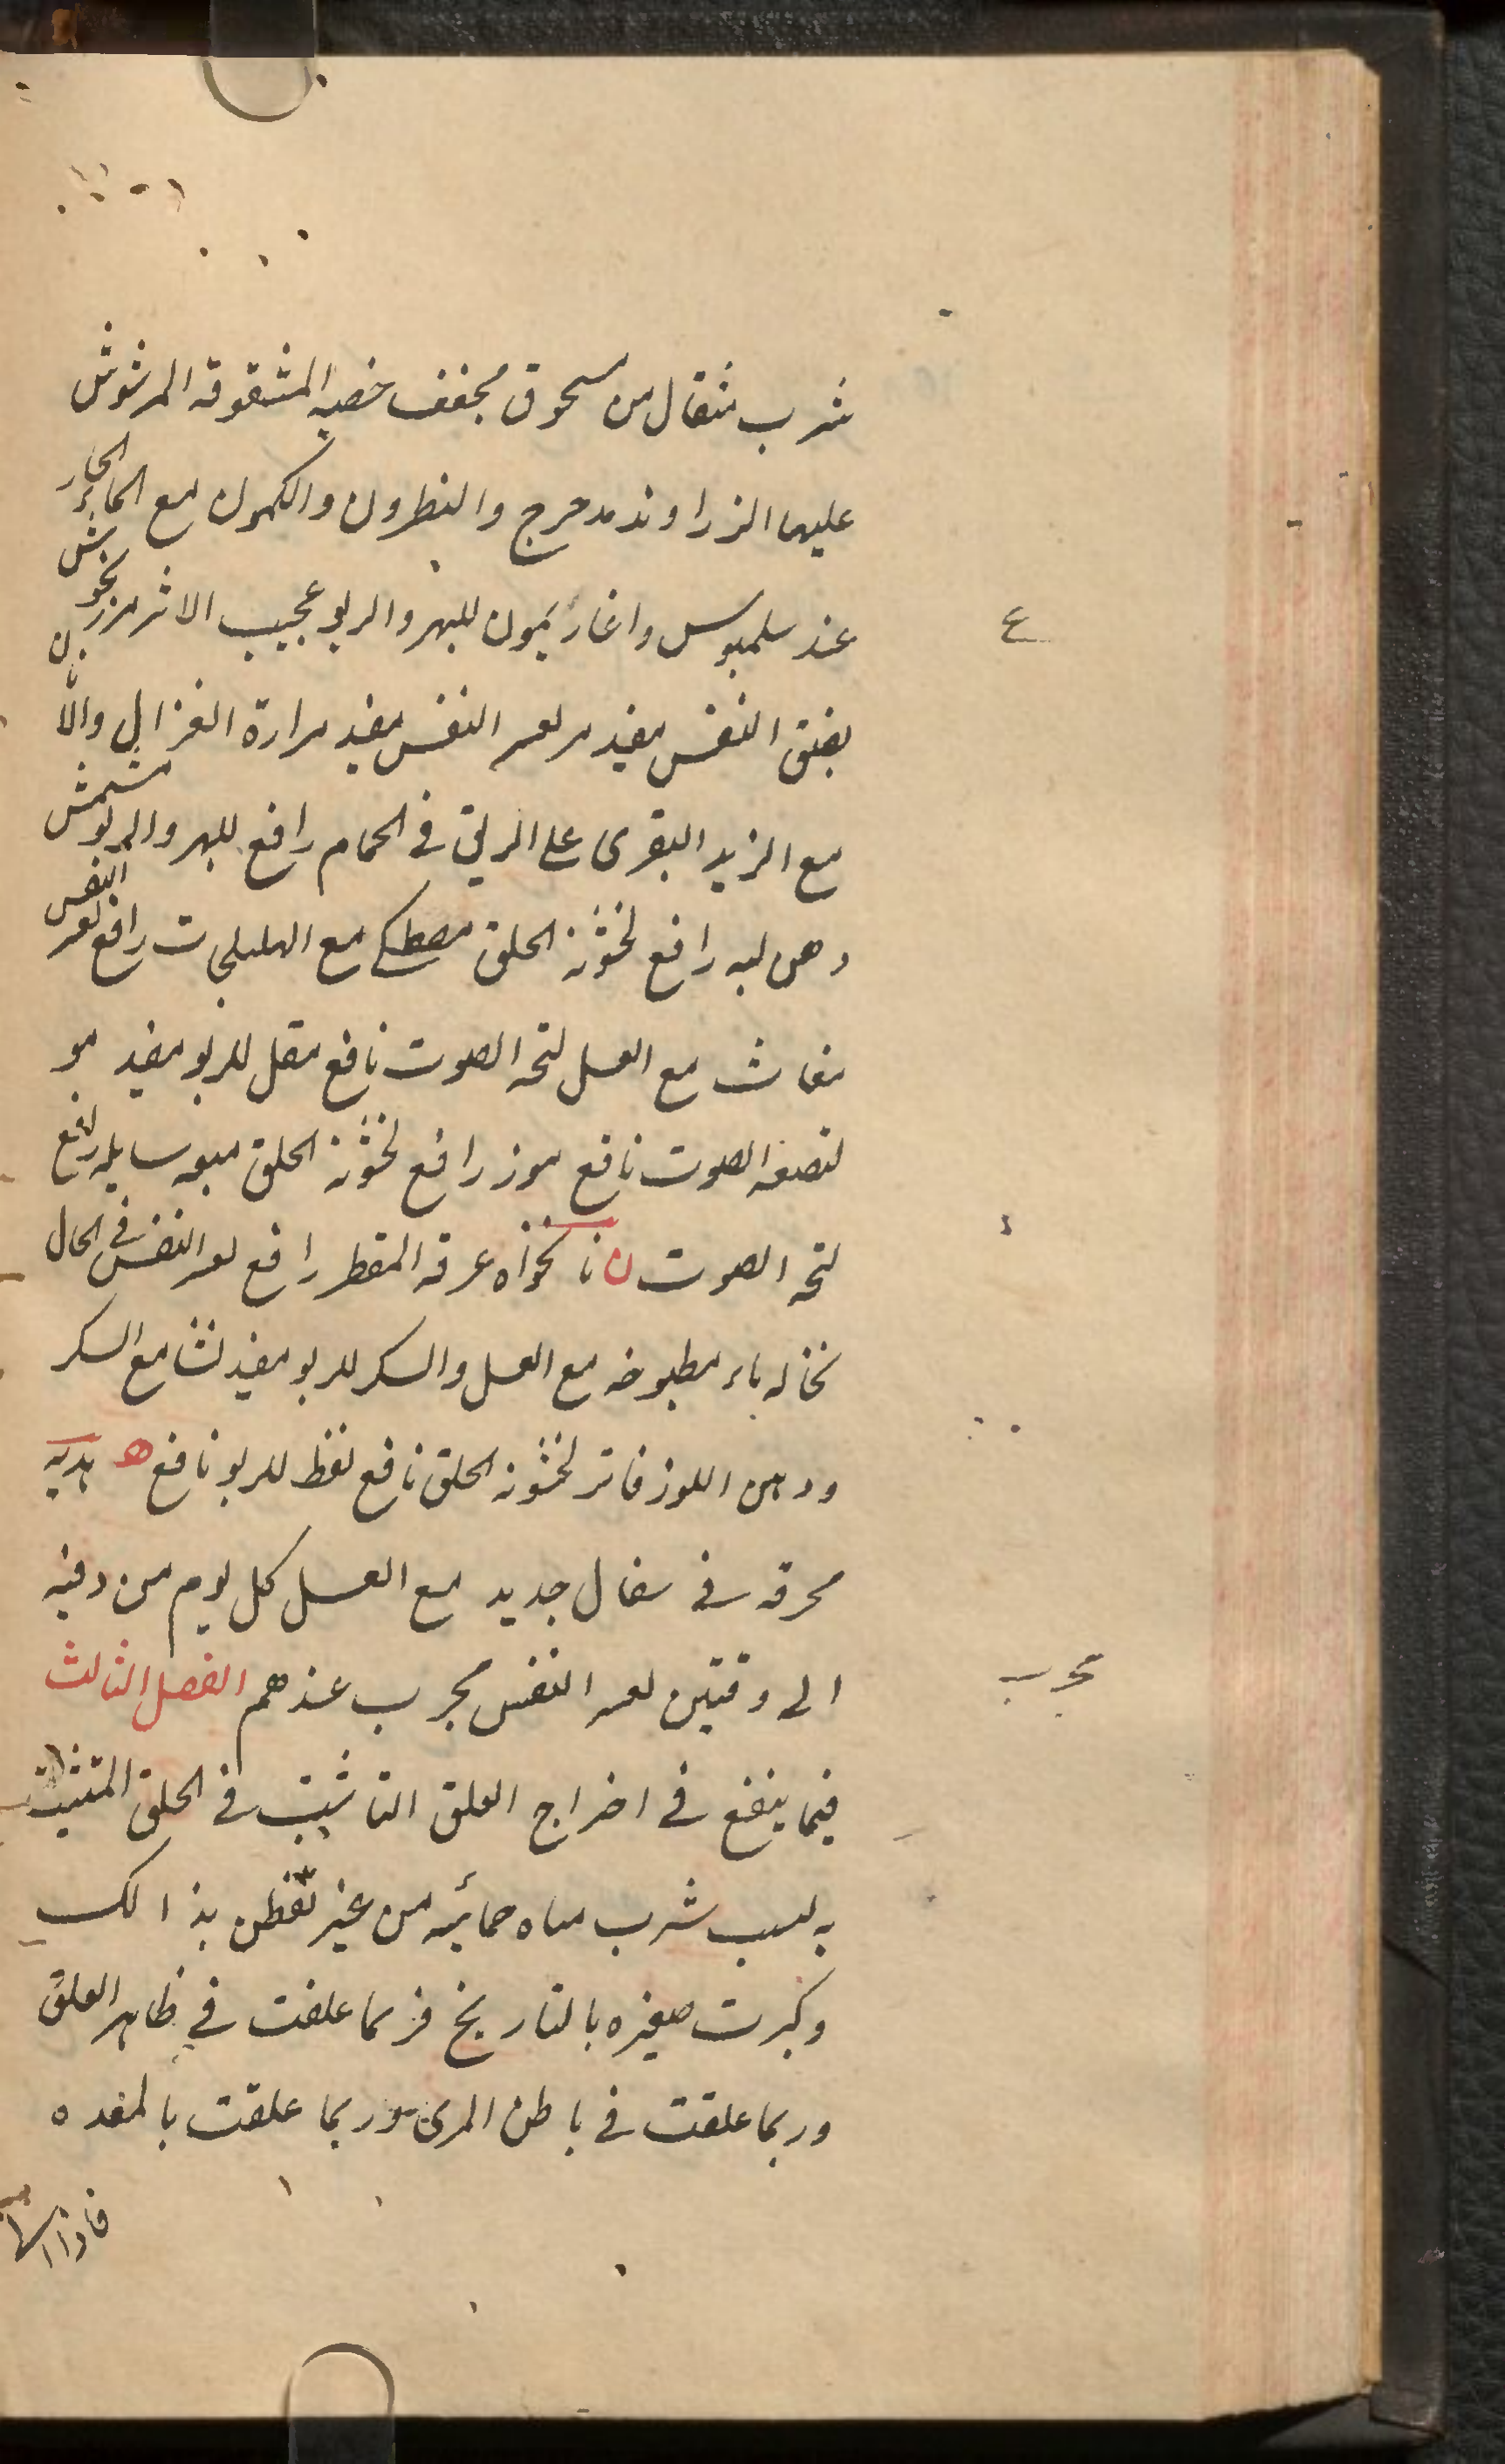 شرب مثقال من مسحوق مجفف خصيه المشقوقه المرشوش
عليها الزراوند مدحرج والنطرون والكمون مع الماء الحار
عند سلمبوس واغاريمون للبهر والربو عجيب الاثر مرزنجوش
ع
بضيق النفس مفيد مر لعسر النفس مفيد مرارة الغزال والا
مع الزبد البقرى على الريق فى الحمام رافع للبهر والربو مشمش
دهن لبه رافع لخشونة الحلق مصطكى مع الهليلجات رافع لعسر النفس
مغاث مع العسل لبحة الصوت نافع مقل للربو مفيد مو
لتصفية الصوت نافع موز رافع لخشونة الحلق ميعه سايله رافع
لبحة الصوت ن نانخواه عرقه المقطر رافع لعسر النفس فى الحال
نخاله بماء مطبوخه مع العسل والسكر للربو مفيد نشا مع السكر
ودهن اللوز فاتر لخشونة الحلق نافع نفط للربو نافع ه هدبه
محرقه فى سفال جديد مع العسل كل يوم من وقيه
الى وقيتين لعسر النفس مجرب عندهم الفصل الثالث
مجرب
فيما ينفع فى اخراج العلق الناشبت فى الحلق المتشبث
به بسبب شرب مياه حمائيه من غير تفطن بذالك
وكبرت صغيره بالتاريخ فربما علقت فى ظاهر الحلق
وربما علقت فى باطن المرى وربما علقت بالمعده
فاذا